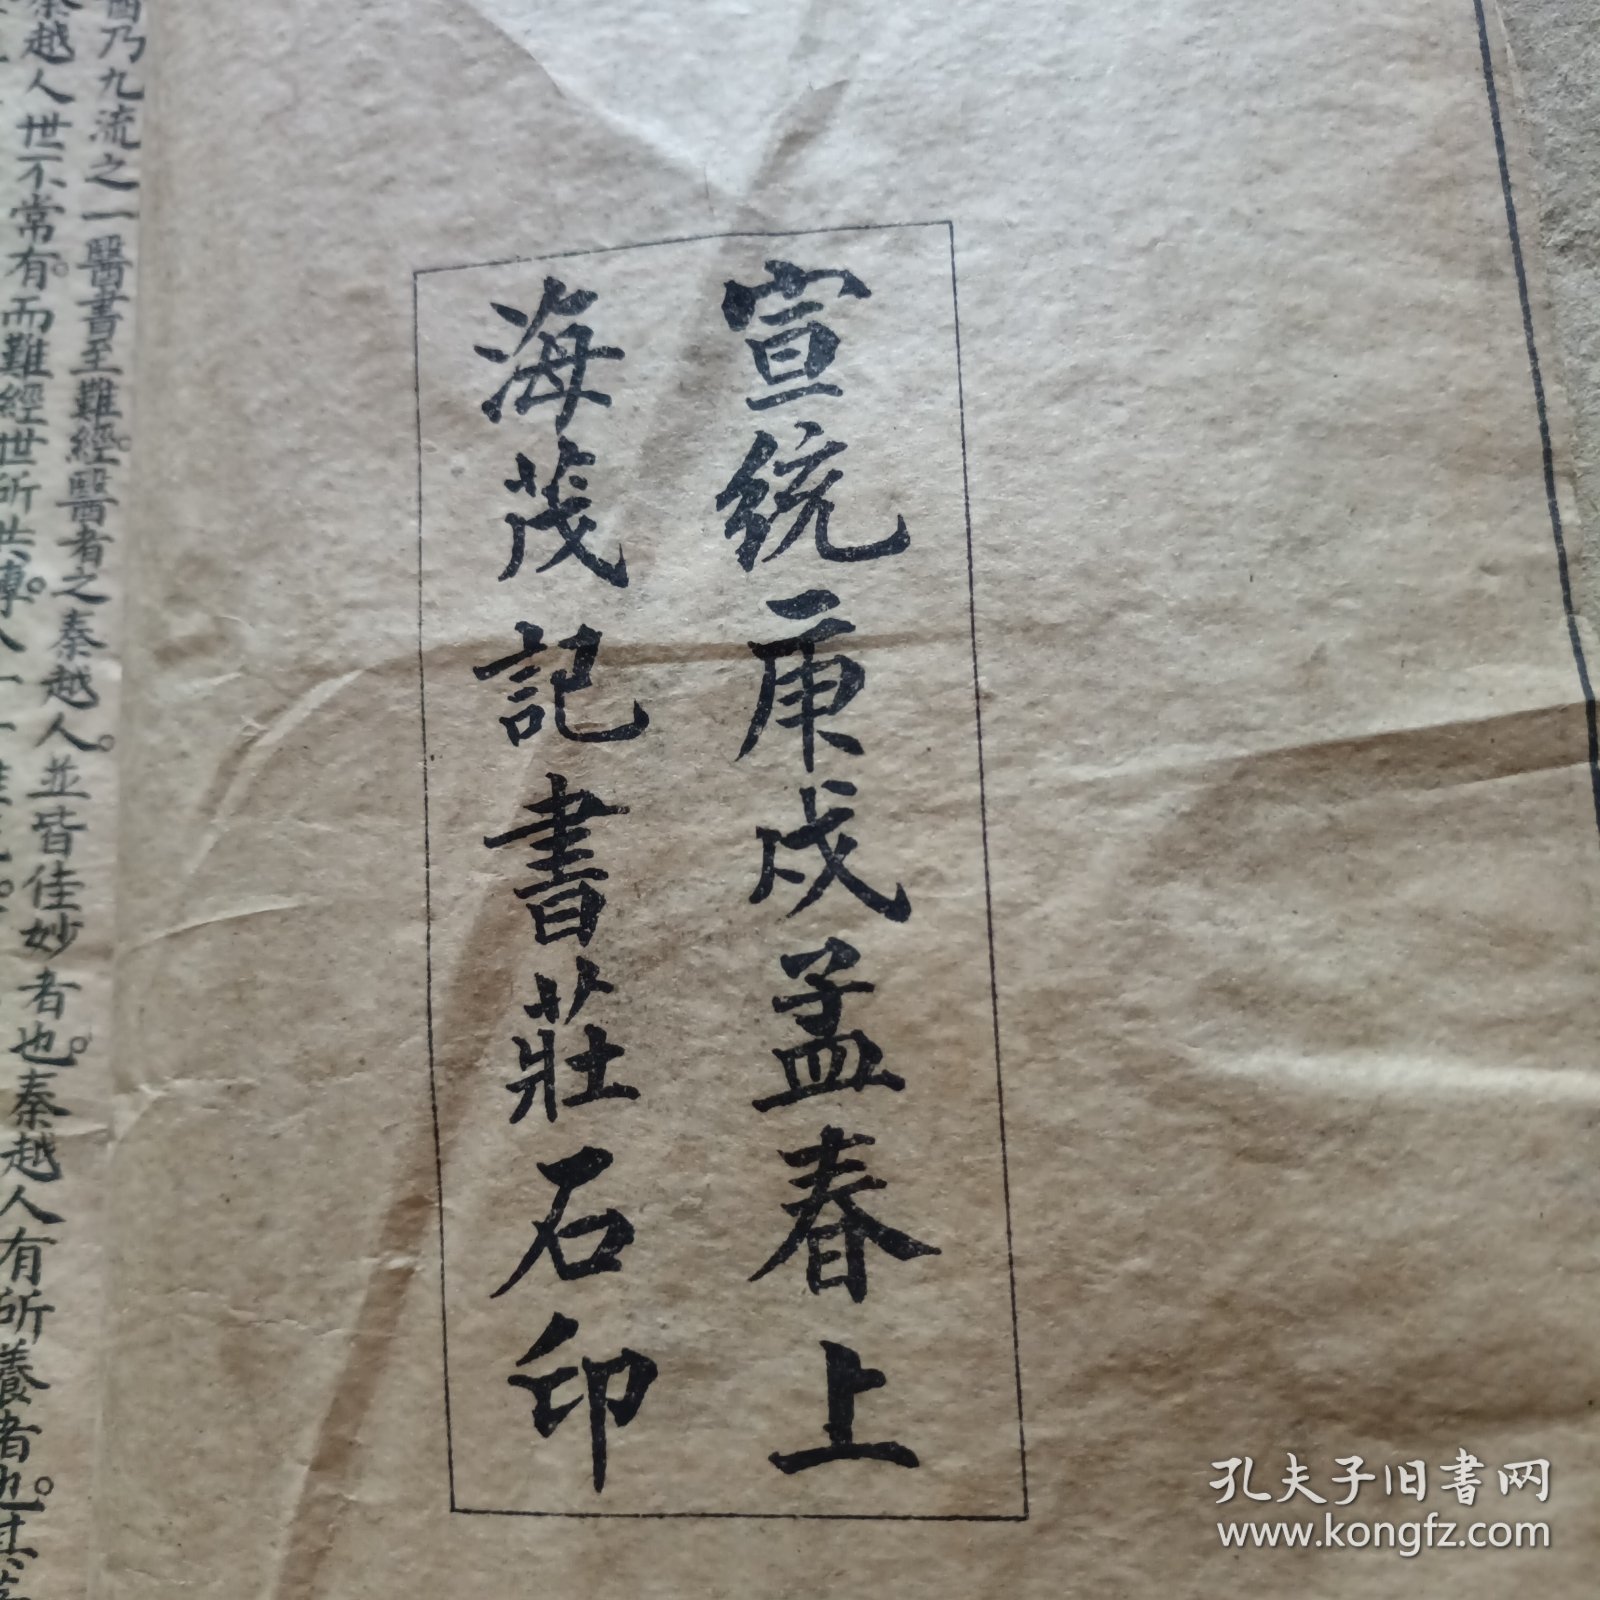 宣統庚戍孟春上
海茂記書莊石印
醫乃九流之一醫書至難經醫者之秦越人並皆佳妙者也秦越人有所養者也
秦越人世不常有而難經世所共傳人
孔夫子旧書网
www.kongfz.com